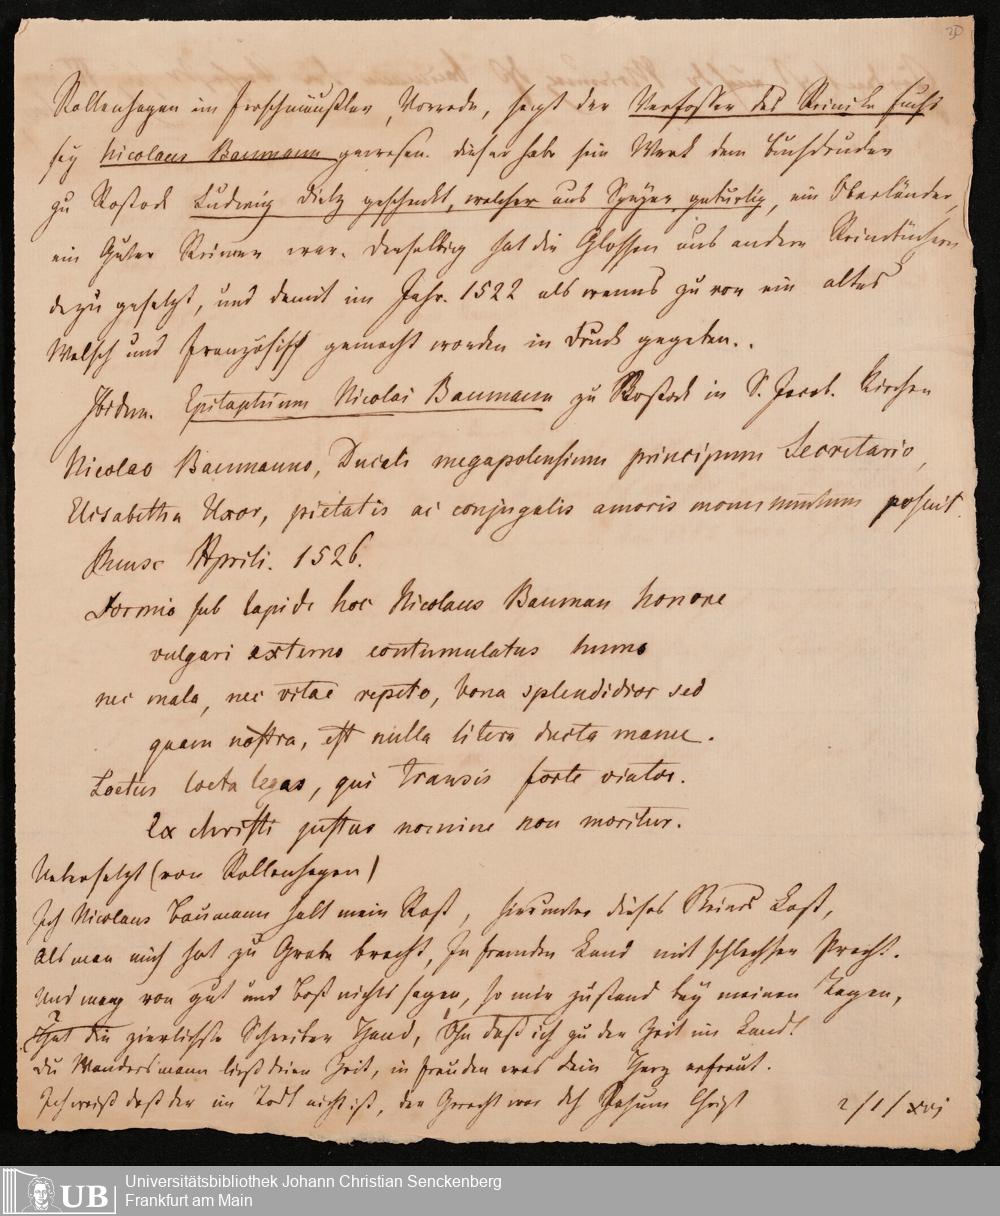 20
Rollenhagen im Froschmäusler, Vorrede, sagt der Verfasser des Reinike Fuchs
sey Nicolaus Baumann gewesen. dieser habe sein Werk dem Buchdrucker
zu Rostock Ludwig Dietz geschenkt, welcher aus Speyer gebürtig, ein Oberländer,
ein guter Reimer war. derselbig hat die Glossen aus andern Reimbüchern
dazu gesetzt, und damit im Jahr. 1522 als wenns zu vor ein altes
Welsch und französisch gemacht worden in Druck gegeben..
Ibidem. Epitaphium Nicolai Baumann zu Rostock in S. Jacob. Kirchen
Nicolao Baumanno, Ducali megapolensium principum Secretario,
Elisabetha Uxor, pietatis ac conjugalis amoris monumentum posuit.
Mense Aprili. 1526.
Dormio sub lapide hoc Nicolaus Bauman honore
vulgari externo contumulatus humo
nec mala, nec vitae repeto, bona splendidior sed
quam nostra, est nulla litera ducta manu.
Laetus laeta legas, qui transis forte viator.
Ex christi justus nomine non moritur.
Uebersetzt (von Rollenhagen)
Ich Nicolaus Baumann halt mein Rast, hierunter dieses Steines Last,
Als man mich hat zu Grabe bracht, In fremden Land mit schlechter Pracht.
Und mag von gut und bos nichts sagen, so mir zustand bey meinen Tagen,
Hat die zierlichste Schreiber Hand, Ohn dass ich zu der Zeit im Land.
Du Wandersmann liess dein Zeit, in freuden was dein Herz erfreut.
Ich weiss dass der im Todt nicht ist, der Gerecht war dch Jesum Christ
2/1/xvj
UB
Universitätsbibliothek Johann Christian Senckenberg
Frankfurt am Main